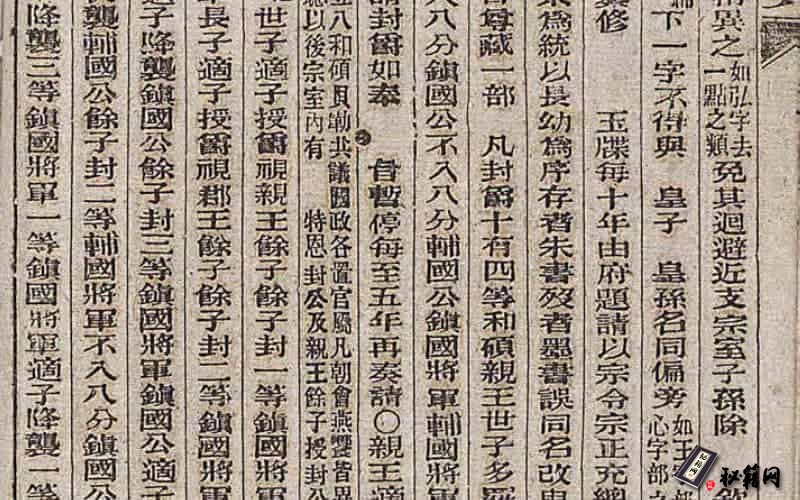 如弘字去
一點之類
免其迴避近支宗室子孫除
下一字不得與 皇子 皇孫名同偏旁
如玉
心字部
修 玉牒每十年由府題請以宗令宗正充
為統以長幼為序存者朱書歿者墨書誤同名改
尊藏一部 凡封爵十有四等和碩親王世子多羅
八分鎮國公不入八分輔國公鎮國將軍輔國將軍
封爵如泰 旨暫停每至五年再奏請○親王適
八和碩貝勒共議國政各置官屬凡朝會燕饗皆
以後宗室內有 特恩封公及親王餘子授封公
世子適子授爵視親王餘子餘子封一等鎮國將軍
長子適子授爵視郡王餘子餘子封二等鎮國將軍
子降襲鎮國公餘子封三等鎮國將軍鎮國公適子
襲輔國公餘子封二等輔國將軍不入八分鎮國公
降襲三等鎮國將軍一等鎮國將軍適子降襲一等
秘籍网